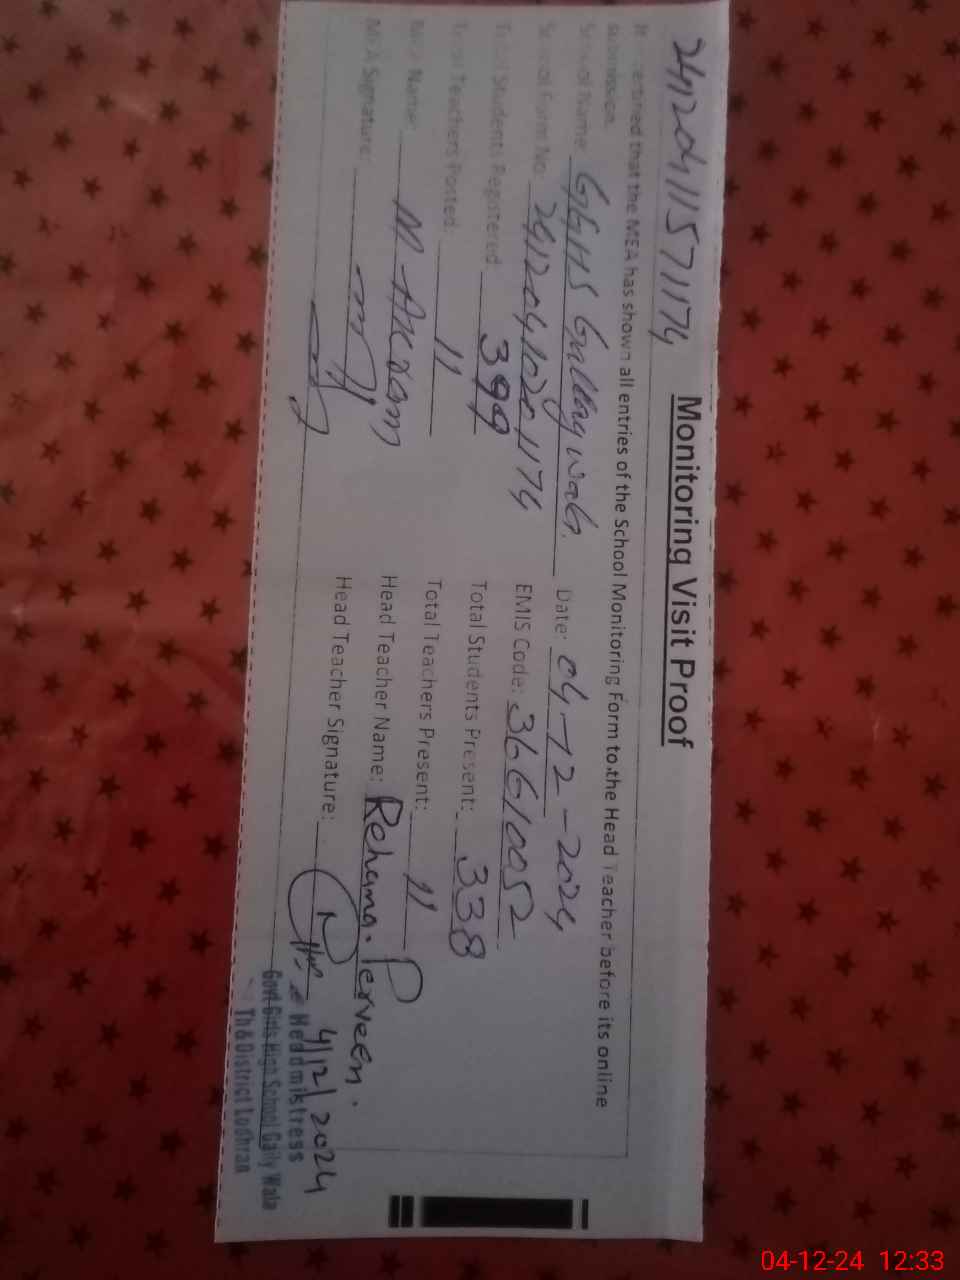 241204115711174
Monitoring Visit Proof
It is certified that the MEA has shown all entries of the School Monitoring Form to the Head Teacher before its online
submission.
School Name: GGHS Galleywala. Date: 04-12-2024
School Form No: 24120410201174 EMIS Code: 36610052
Total Students Registered: 399 Total Students Present: 338
Total Teachers Posted: 11 Total Teachers Present: 11
MEA Name: M. Akram Head Teacher Name: Rehana Perveen.
MEA Signature: Head Teacher Signature:
4/12/2024
Headmistress
Govt Girls High School Gaily Wala
Th & District Lodhran
04-12-24 12:33